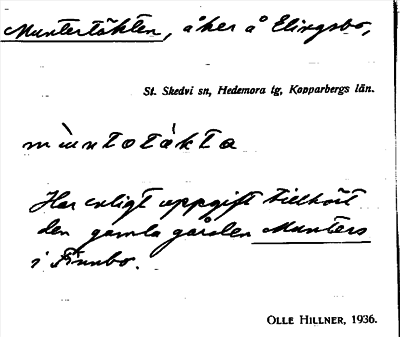 Muntertäkten, åker å Elingsbo,
St. Skedvi sn, Hedemora tg, Kopparbergs län.
mùntotákta
Har enligt uppgift tillhört
den gamla gården Munters
i Finnbo.
OLLE HILLNER, 1936.